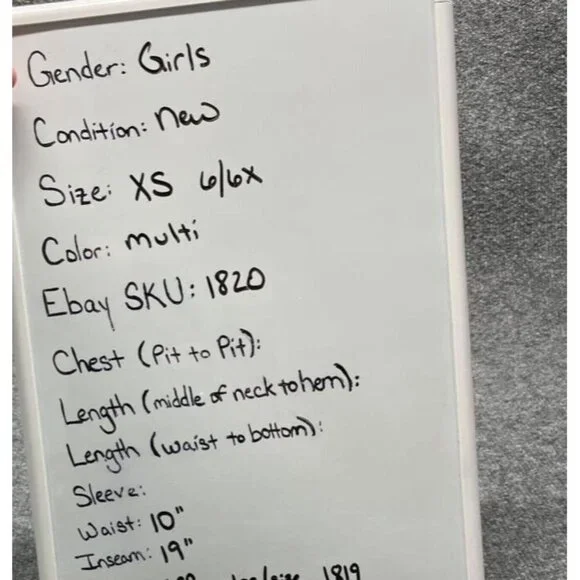 Gender: Girls
Condition: new
Size: XS 6/6X
Color: multi
Ebay SKU: 1820
Chest (Pit to Pit):
Length (middle of neck to hem):
Length (waist to bottom):
Sleeve:
Waist: 10"
Inseam: 19"
1819